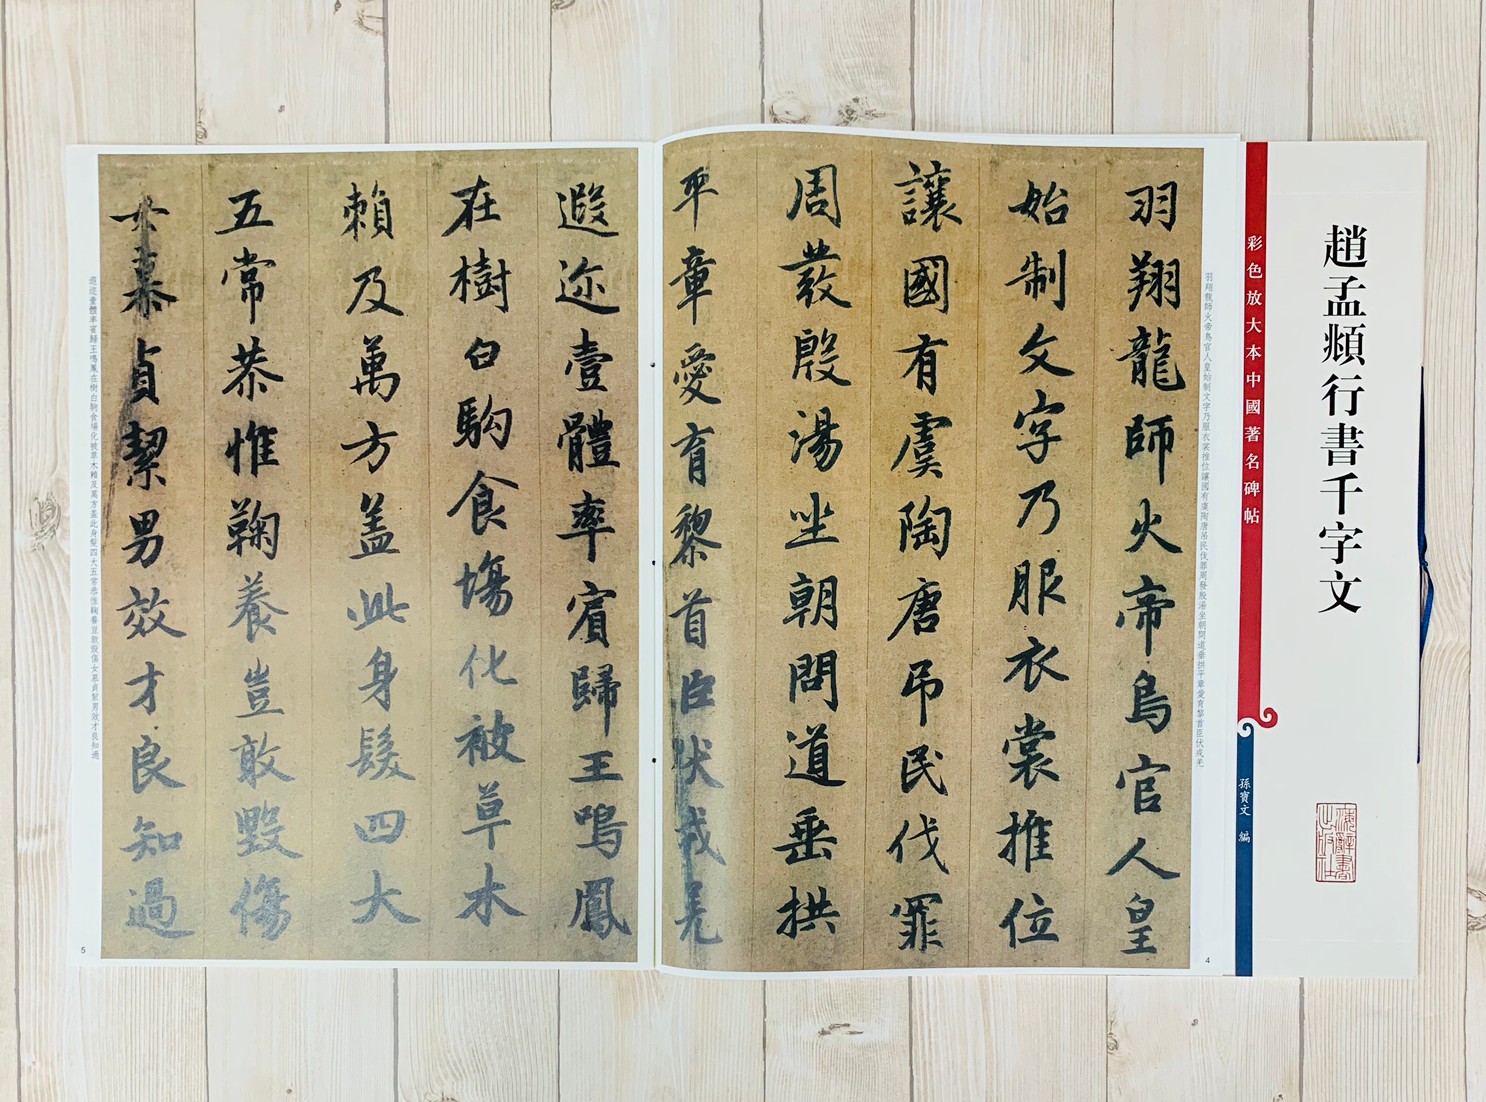 趙孟頫行書千字文
彩色放大本中國著名碑帖
孫寶文 編
羽翔龍師火帝鳥官人皇始制文字乃服衣裳推位讓國有虞陶唐吊民伐罪周發殷湯坐朝問道垂拱平章愛育黎首臣伏戎羌
4
羽翔龍師火帝鳥官人皇
始制文字乃服衣裳推位
讓國有虞陶唐吊民伐罪
周發殷湯坐朝問道垂拱
平章愛育黎首臣伏戎羌
遐迩壹體率賓歸王鳴鳳
在樹白駒食場化被草木
賴及萬方盖此身髮四大
五常恭惟鞠養豈敢毀傷
女慕貞絜男效才良知過
遐迩壹體率賓歸王鳴鳳在樹白駒食場化被草木賴及萬方盖此身髮四大五常恭惟鞠養豈敢毀傷女慕貞絜男效才良知過
5